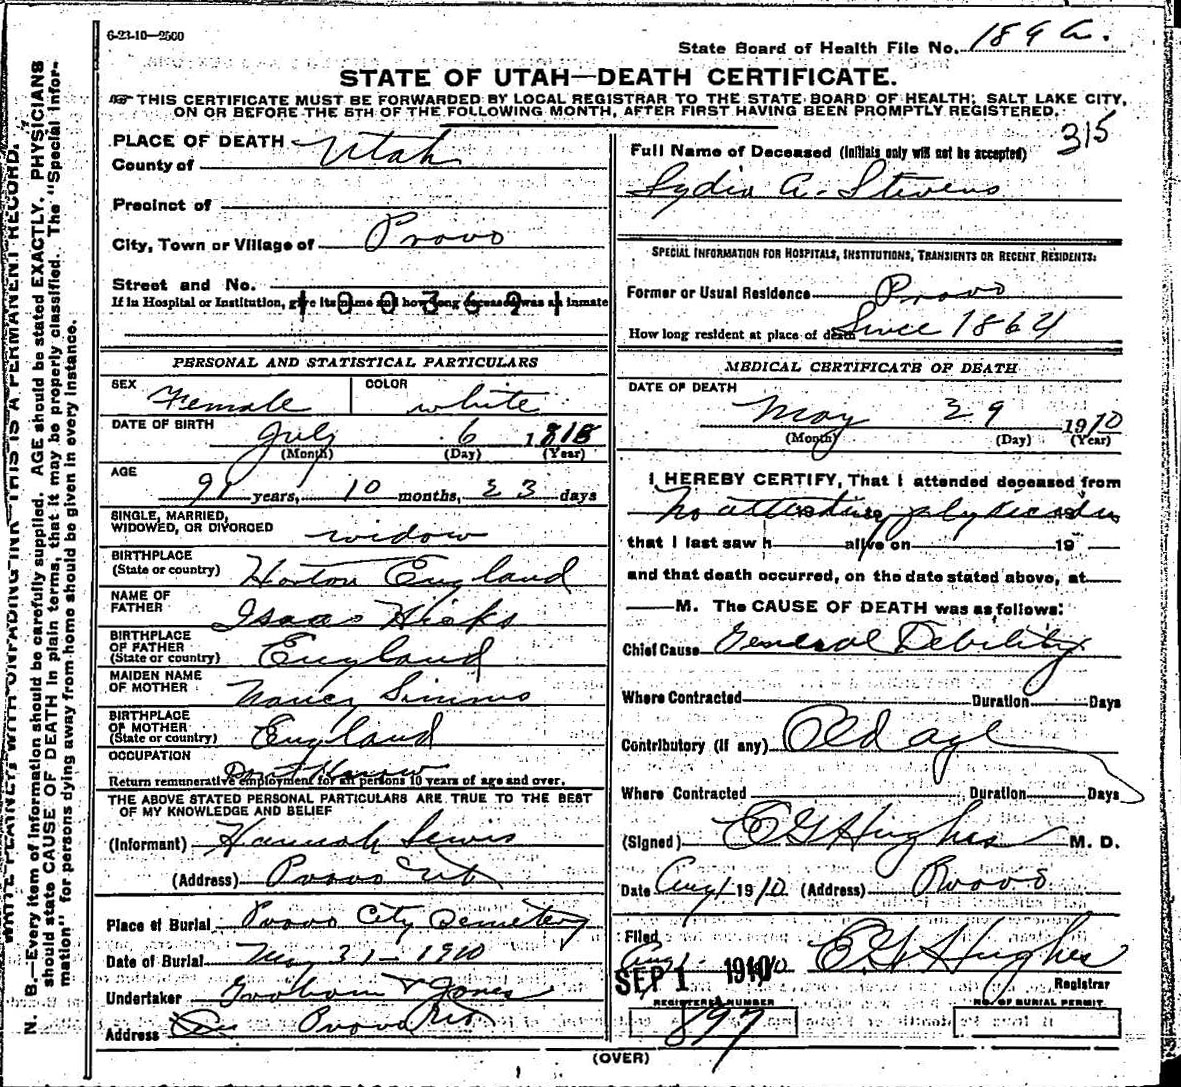 6-23-10—2500
State Board of Health File No. 189 a.
STATE OF UTAH—DEATH CERTIFICATE.
THIS CERTIFICATE MUST BE FORWARDED BY LOCAL REGISTRAR TO THE STATE BOARD OF HEALTH, SALT LAKE CITY,
ON OR BEFORE THE 5TH OF THE FOLLOWING MONTH, AFTER FIRST HAVING BEEN PROMPTLY REGISTERED.
315
PLACE OF DEATH
County of Utah
Precinct of
City, Town or Village of Provo
Street and No.
If in Hospital or Institution, give its name and how long deceased was an inmate
1003621
Full Name of Deceased (Initials only will not be accepted)
Lydia A. Stevens
SPECIAL INFORMATION FOR HOSPITALS, INSTITUTIONS, TRANSIENTS OR RECENT RESIDENTS:
Former or Usual Residence Provo
How long resident at place of death Since 1864
PERSONAL AND STATISTICAL PARTICULARS
SEX Female
COLOR white
DATE OF BIRTH July 6 1818
(Month) (Day) (Year)
AGE
91 years, 10 months, 23 days
SINGLE, MARRIED,
WIDOWED, OR DIVORCED widow
BIRTHPLACE
(State or country) Horton England
NAME OF
FATHER Isaac Hicks
BIRTHPLACE
OF FATHER
(State or country) England
MAIDEN NAME
OF MOTHER Nancy Simms
BIRTHPLACE
OF MOTHER
(State or country) England
OCCUPATION Dont Know
Return remunerative employment for all persons 10 years of age and over.
THE ABOVE STATED PERSONAL PARTICULARS ARE TRUE TO THE BEST
OF MY KNOWLEDGE AND BELIEF
(Informant) Hannah Lewis
(Address) Provo Ut
Place of Burial Provo City Cemetery
Date of Burial May 31- 1910
Undertaker Graham & Jones
Address Provo Ut
MEDICAL CERTIFICATE OF DEATH
DATE OF DEATH
May 29 1910
(Month) (Day) (Year)
I HEREBY CERTIFY, That I attended deceased from
No attending physician
that I last saw h alive on 19
and that death occurred, on the date stated above, at
M. The CAUSE OF DEATH was as follows:
Chief Cause General Debility
Where Contracted Duration Days
Contributory (if any) Old age
Where Contracted Duration Days
(Signed) E G Hughes M. D.
Date Aug 1 1910 (Address) Provo
Filed
Aug 1- 1910 E. G. Hughes
SEP 1 1910
Registrar
REGISTERED NUMBER
897
NO. OF BURIAL PERMIT
(OVER)
WRITE PLAINLY WITH UNFADING INK—THIS IS A PERMANENT RECORD.
N. B.—Every item of information should be carefully supplied. AGE should be stated EXACTLY. PHYSICIANS
should state CAUSE OF DEATH in plain terms, that it may be properly classified. The "Special Infor-
mation" for persons dying away from home should be given in every instance.